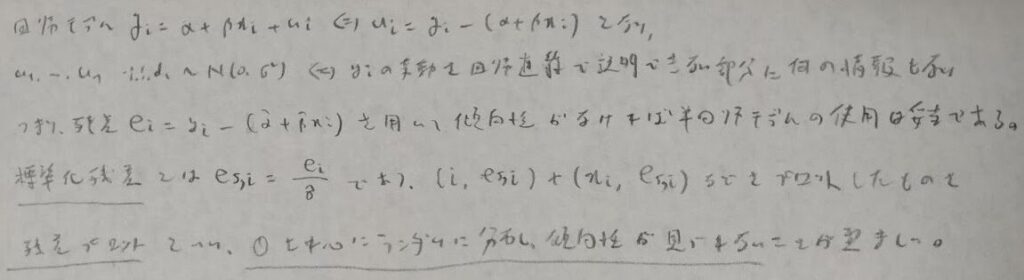 回帰モデル yi = α + βxi + ui ⇔ ui = yi − (α + βxi) となり、
u1, …, un i.i.d. ~ N(0, σ²) ⇔ yiの変動を回帰直線で説明できない部分に何の情報もない
つまり、残差 ei = yi − (α̂ + β̂xi) を用いて傾向性がなければ単回帰モデルの使用は妥当である。
標準化残差とは es,i = ei/σ̂ であり、(i, es,i) や (xi, es,i) などをプロットしたものを
残差プロットといい、0を中心にランダムに分布し、傾向性が見られないことが望ましい。